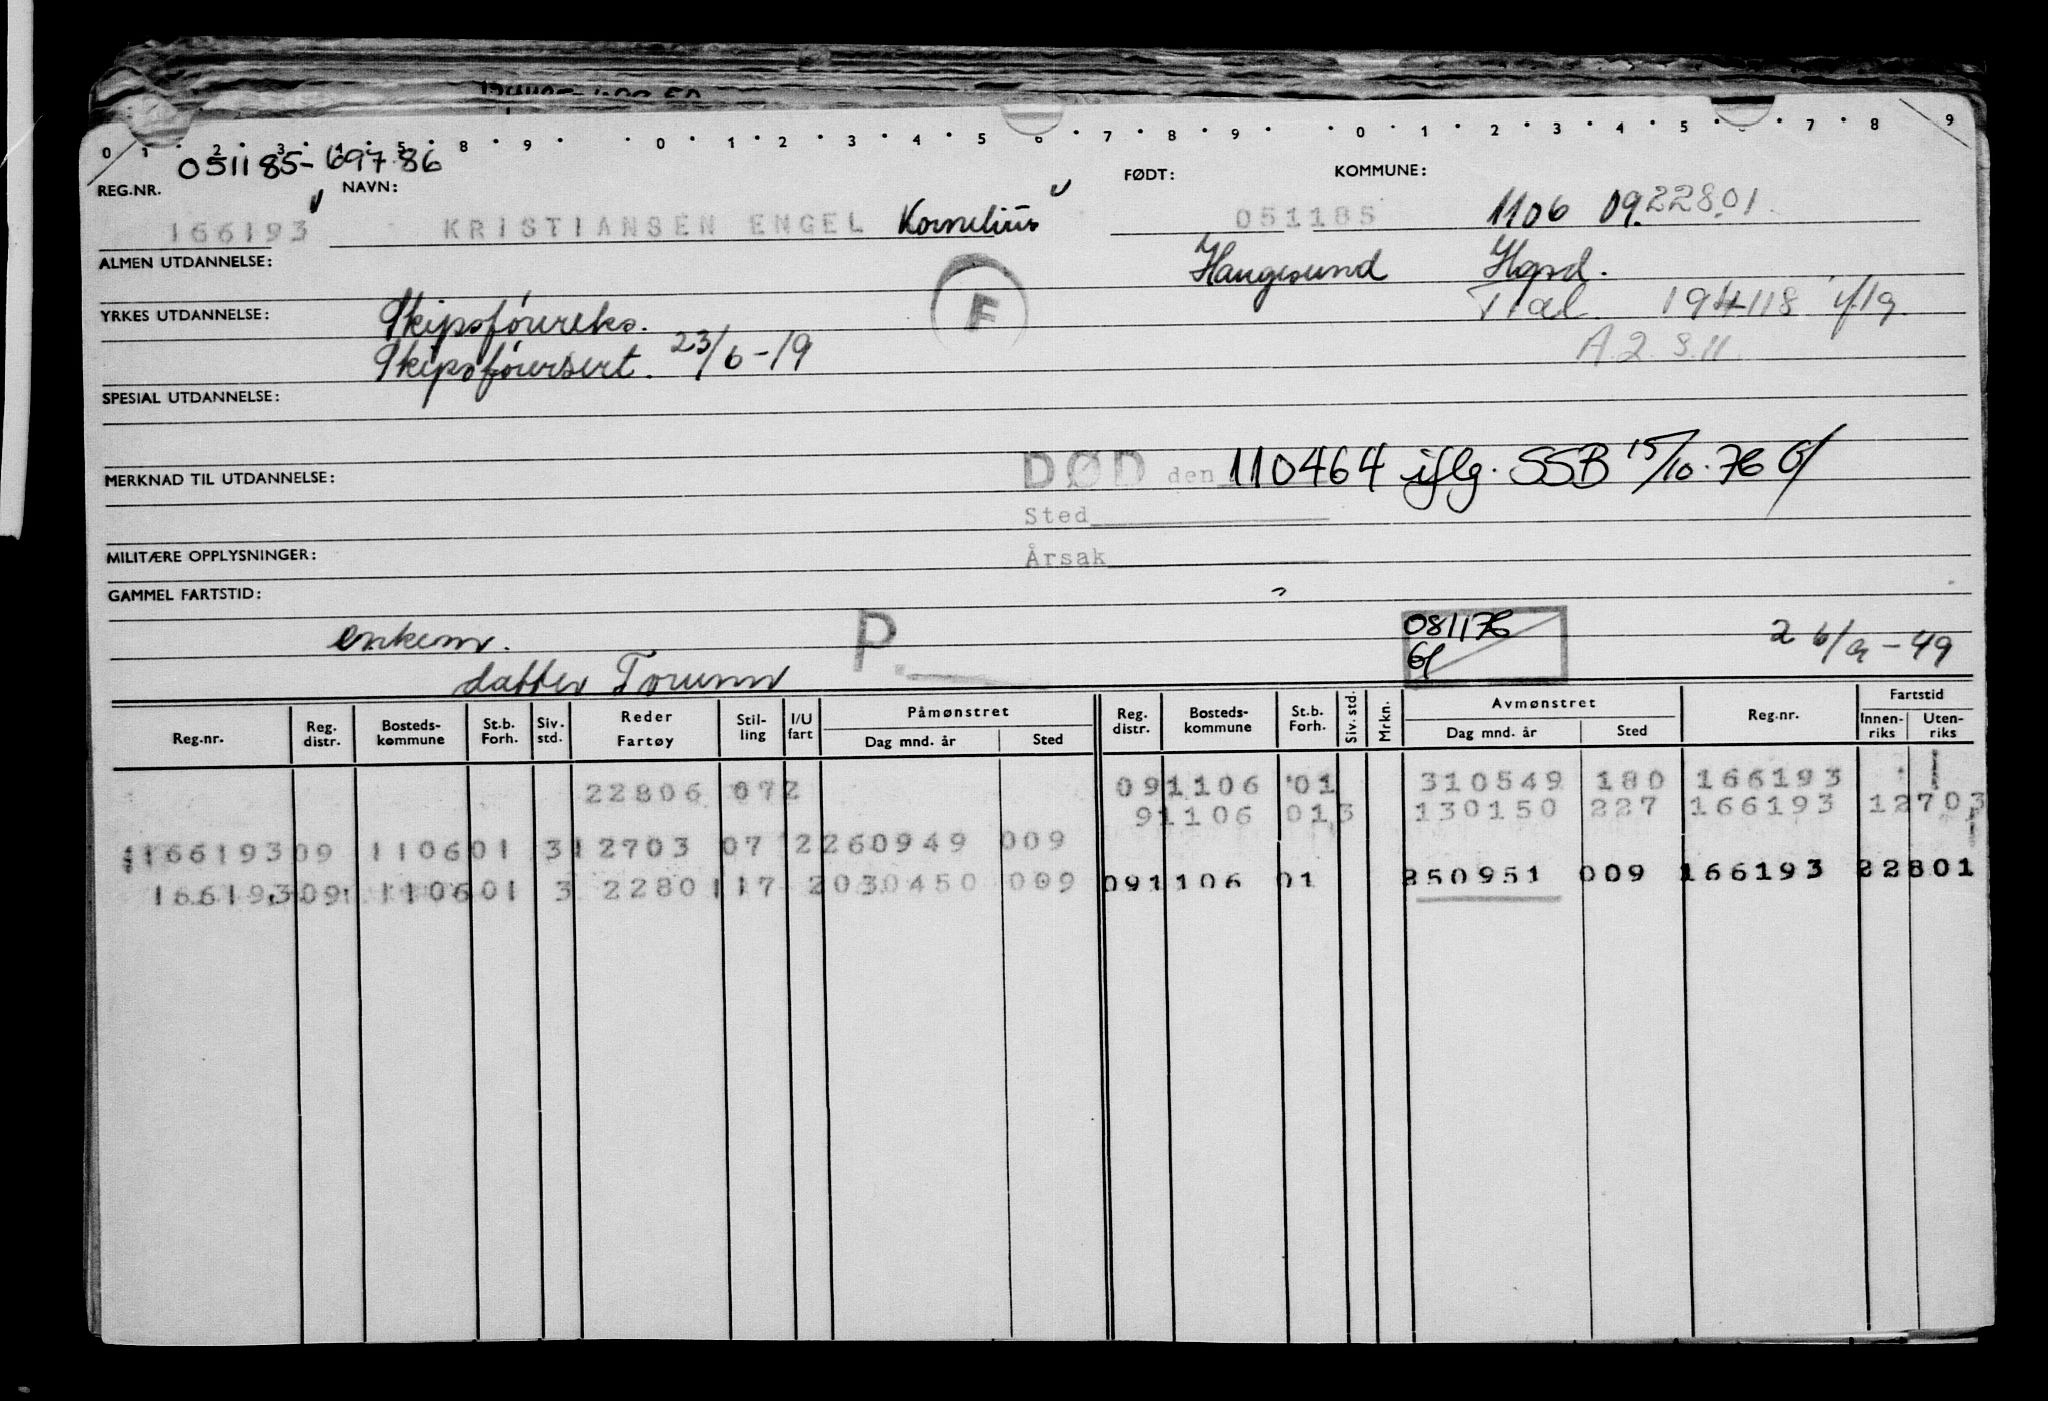 0 1 2 3 4 5 8 9 0 1 2 3 4 5 6 7 8 9 0 1 2 3 4 5 7 8 9
051185-69786
REG.NR. NAVN: FØDT: KOMMUNE:
166193 KRISTIANSEN ENGEL Kornelius 051185 1106 09.22801
ALMEN UTDANNELSE: Haugesund Hgsd.
F
YRKES UTDANNELSE: Skipsførereks. 194118
Skipsførersert. 23/6-19 A2 S.11
SPESIAL UTDANNELSE:
MERKNAD TIL UTDANNELSE: DØD den 110464 iflg. SSB 15/10.76
Sted
MILITÆRE OPPLYSNINGER: Årsak
GAMMEL FARTSTID:
enkem. P. 081176 2 6/9-49
datter Torunn
Reg.nr. Reg. distr. Bosteds-kommune St.b. Forh. Siv. std. Reder Fartøy Stil-ling I/U fart Påmønstret Dag mnd. år Sted Reg. distr. Bosteds-kommune St.b. Forh. Siv. std. Mrkn. Avmønstret Dag mnd. år Sted Reg.nr. Fartstid Innen-riks Uten-riks
22806 072 091106 01 310549 180 166193
91106 013 130150 227 166193 12703
166193 09 1106 01 3 12703 07 2 260949 009
166193 09 1106 01 3 22801 17 2 030450 009 091106 01 250951 009 166193 22801